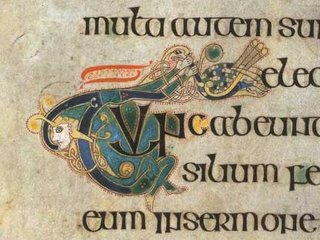 multi autem sun
elec
Tunc abeunt
silium fe
eum insermone